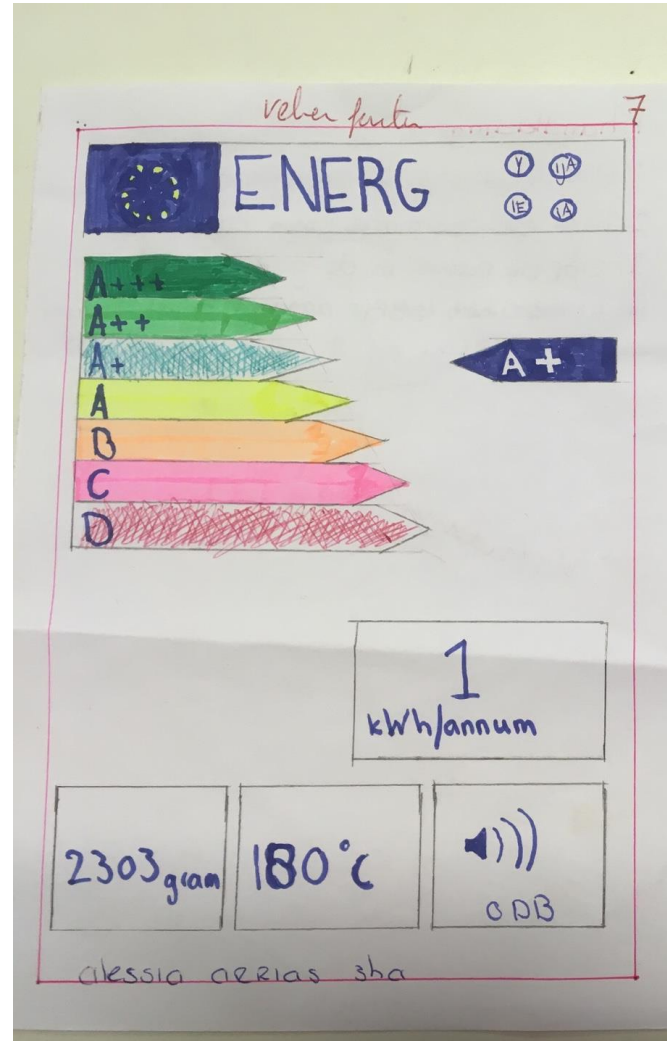 7
ENERG
Y IJA
IE IA
A+++
A++
A+
A+
A
B
C
D
1
kWh/annum
2303 gram
180°C
0DB
alessia aerias 3ha